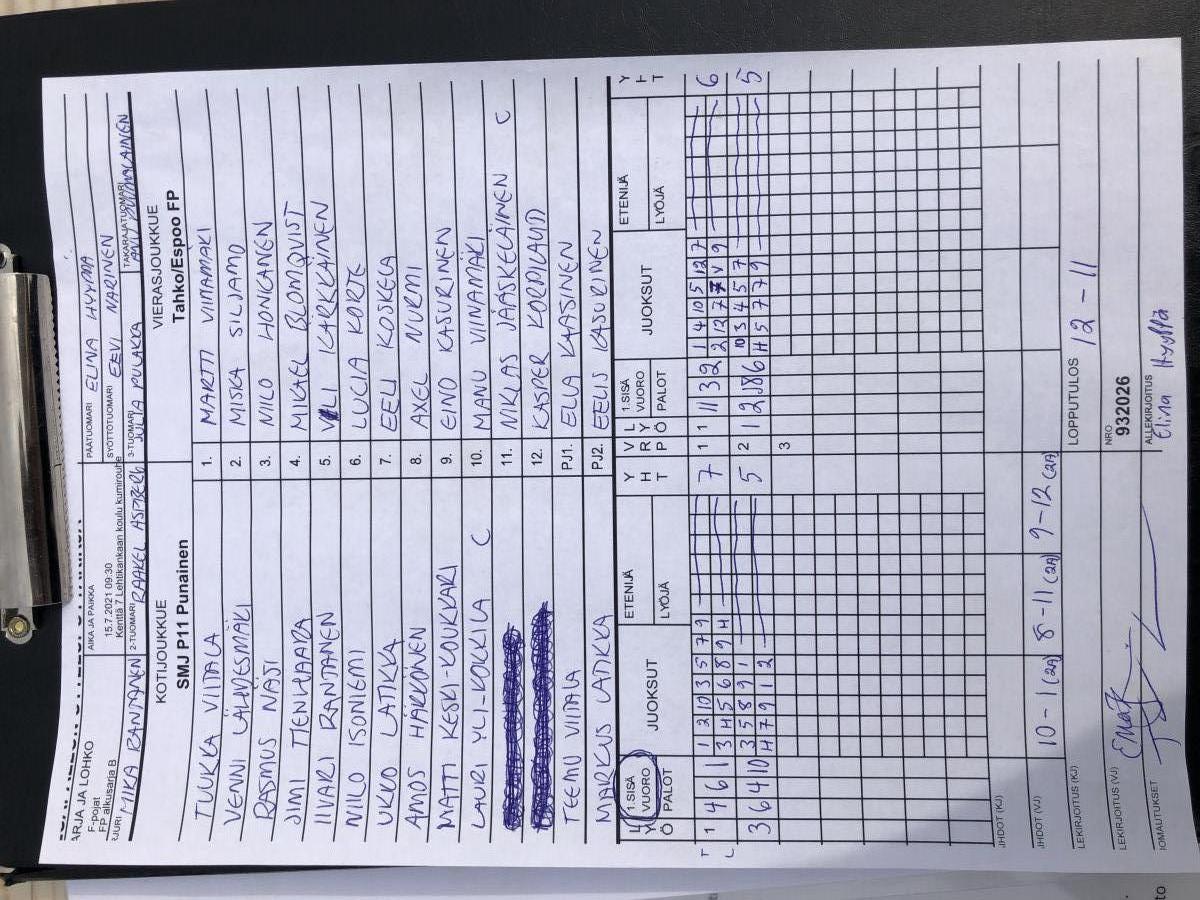 ARJA JA LOHKO
F-pojat
FP alkusarja B
AIKA JA PAIKKA
15.7.2021 09:30
Kenttä 7 Lehtikankaan koulu kumirouhe
PÄÄTUOMARI ELINA HYYPPÄ
SYÖTTOTUOMARI EEVI NARINEN
MIKA RANTANEN
2-TUOMARI RAAKEL
3-TUOMARI JULIA PULAKKA
TAKARAJATUOMARI
KOTIJOUKKUE
SMJ P11 Punainen
VIERASJOUKKUE
Tahko/Espoo FP
TUUKKA VIITALA 1. MARTTI VIITAMÄKI
VENNI LÄHMESMÄKI 2. MISKA SILJAMO
RASMUS NÄSI 3. NIILO HONKANEN
JIMI TIENHAARA 4. MIKAEL BLOMQVIST
IIVARI RANTANEN 5. VILI KÄRKKÄINEN
NIILO ISONIEMI 6. LUCIA KORTE
UKKO LATIKKA 7. EELI KOSKELA
AMOS HÄRKÖNEN 8. AXEL NURMI
MATTI KESKI-KOUKKARI 9. EINO KASURINEN
LAURI YLI-KOKKILA C 10. MANU VIINAMÄKI
11. NIKLAS JÄÄSKELÄINEN C
12. KASPER
TEEMU VIITALA PJ1. ELLA KAASINEN
MARKUS LATIKKA PJ2. EELIS KASURINEN
L Y Ö 1.SISÄ VUORO PALOT JUOKSUT ETENIJÄ LYÖJÄ Y H T V R P L Y Ö 1.SISÄ VUORO PALOT JUOKSUT ETENIJÄ LYÖJÄ Y H T
T 1 4 6 1 1 2 10 3 5 7 9 7 1 1 11 3 2 1 4 10 5 12 7 6
L 3 H 5 6 8 9 H 2 12 7 7 9
3 6 4 10 3 5 8 9 1 5 2 1 2 8 6 10 3 4 5 7 5
H 7 9 1 2 H 5 7 7 9
3
JHDOT (KJ)
JHDOT (VJ) 10-1 (2A) 8-11 (2A) 9-12 (2A)
LEKIRJOITUS (KJ)
LOPPUTULOS 12-11
LEKIRJOITUS (VJ)
NRO
932026
IOMAUTUKSET
ALLEKIRJOITUS
Elina Hyyppä